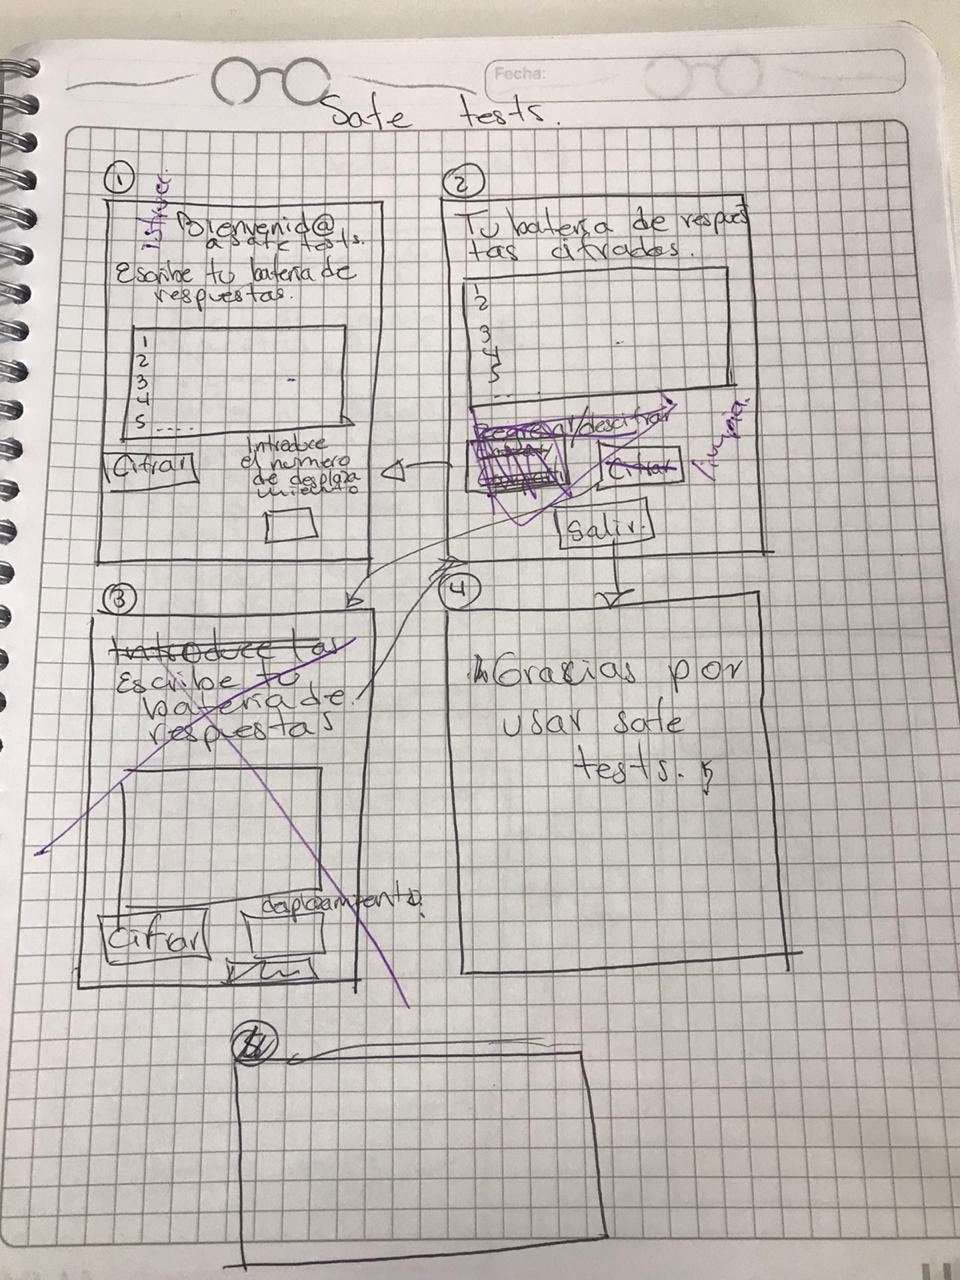 Fecha:
Safe tests.
1
Bienvenid@
a safe tests.
Escribe tu bateria de
respuestas.
1
2
3
4
5 ....
Cifrar
Introduce
el numero
de desplaza
miento
2
Tu bateria de respues
tas cifradas.
1
2
3
4
5
....
Regresar/descifrar
Cifrar
limpia.
Salir.
3
Introduce tas
Escribe tu
bateria de
respuestas
desplazamiento.
Cifrar
4
Gracias por
usar safe
tests.